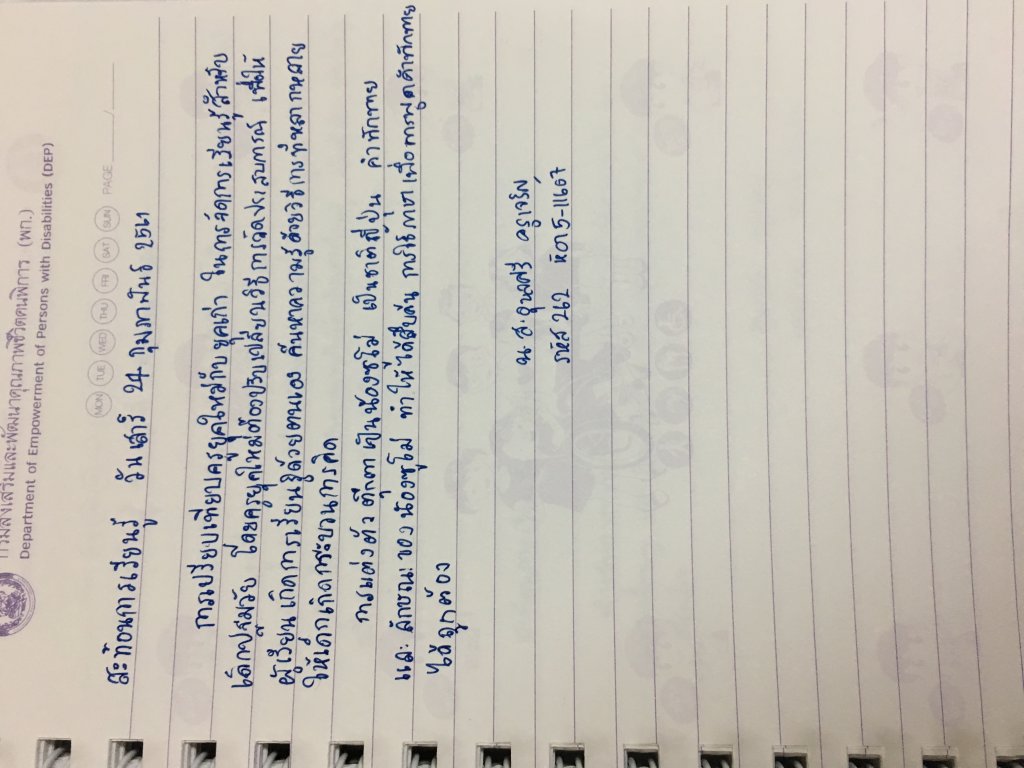 กรมส่งเสริมและพัฒนาคุณภาพชีวิตคนพิการ (พก.)
Department of Empowerment of Persons with Disabilities (DEP)
MON TUE WED THU FRI SAT SUN PAGE ____/____
สะท้อนการเรียนรู้ วันเสาร์ 24 กุมภาพันธ์ 2561
การเปรียบเทียบครูยุคใหม่กับยุคเก่า ในการจัดการเรียนรู้สำหรับ
เด็กปฐมวัย โดยครูยุคใหม่ต้องปรับเปลี่ยนวิธีการจัดประสบการณ์ เพื่อให้
ผู้เรียนเกิดการเรียนรู้ด้วยตนเอง ค้นหาความรู้ด้วยวิธีการที่หลากหลาย
ให้เด็กเกิดกระบวนการคิด
การแต่งตัวตุ๊กตาเป็นน้องซูโม่ เป็นชาติญี่ปุ่น คำทักทาย
และ ลักษณะของน้องซูโม่ ทำให้ได้สืบค้น การใช้ภาษาเพื่อการพูดคำทักทาย
ได้ถูกต้อง
น.ส.สุนทรี
รหัส 262 ห้อง 5-11607